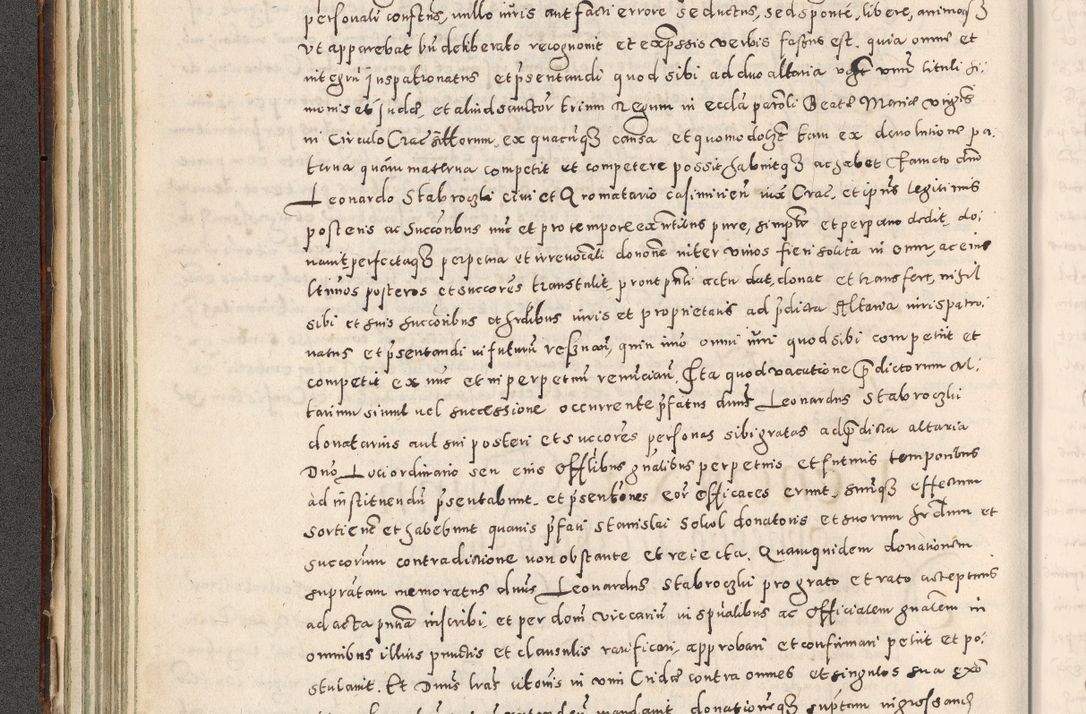 personali constitus, nullo iuris aut facti errore seductus, sed sponte, libere, animo
vt apparebat bn deliberato recognouit et expssis verbis fassus est. quia omne et
integrū Juspatronatus et psentandi quod sibi ad duo altaria vnū tituli Si,
monis et Judæ, et aliud sanctor trium Regum in eccla paroli Beatæ Mariæ virgis
in Circulo Crac sittorum, ex quacūq3 causa et quomodolz tam ex deuolutione pa,
terna quam materna competit et competere possit habuitq3 ac habet famato dno
Leonardo Stabroczki ciui et Aromatario casimirien iux Crac, et ipsius legitimis
posteris ac succoribus nūc et pro tempore exntibus pure, simplr et perpetuo dedit, do,
nauit, perfectaq3 perpetua et irreuocali donone inter viuos fieri solita in eum, ac eius
ltimos posteros et succores transtulit, prout pnti actu dat, donat et transfert, nihil
sibi et suis succoribus et hrdibus iuris et proprietatis ad pdicta Altaria iurispatro,
natus et psentandi in futurū reseruan, quin imo omni iuri quod sibi competiit et
competit ex nūc et in perpetuū renuncian. Ita quod vacatione pdictorum Al,
tarium simul uel successione occurrente pfatus dnus Leonardus Stabroczki
donatarius aut sui posteri et succores personas sibi gratas ad pdicta altaria
Dno Loci ordinario seu eius Offlibus gnalibus perpetuis et futuris temporibus
ad instituendū psentabunt, et psentones eor efficaces erunt, suūq3 effectum
sortient et habebunt quauis pfati Stanislai Sokol donatoris et suorum hrdum et
succorum contradictione non obstante et reiecta. Quamquidem donationem
supratam memoratus dnus Leonardus Stabroczki pro grato et rato acceptans
ad acta pnta inscribi, et per dom Viccariū in spualibus ac Officialem gnalem in
omnibus illius punctis et clausulis ratificari, approbari et confirmari petiit et po,
stulauit. Et Dnus lras citonis in vim Cridæ contra omnes et singulos sua
mandauit donationeq3 suptam ingrossand